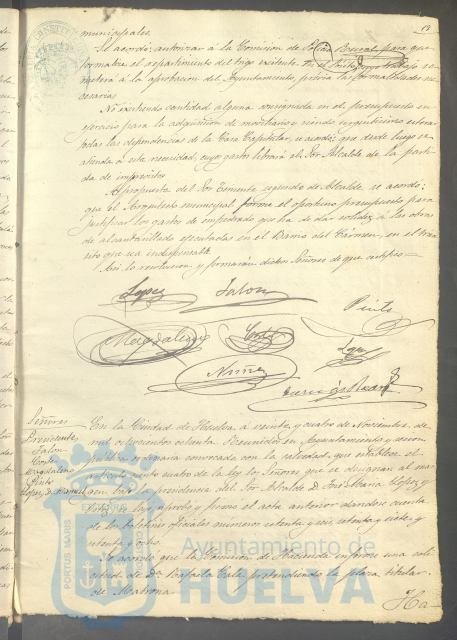 19
municipales.
Se acordó: autorizar á la Comision de Policia Rural para que
formalice el repartimiento del trigo existente en el Pósito y
metera á la aprobacion del Ayuntamiento, prévia las formalidades ne-
cesarias.
No existiendo cantidad alguna consignada en el presupuesto en
ejercicio para la adquisicion de mobiliario y siendo urgente
todas las dependencias de la Casa Capitular, se acordó: que desde luego se
atienda á esta necesidad, cuyo gasto librará el Sor Alcalde de la parti-
da de imprevistos
A propuesta del Sor Teniente segundo de Alcalde, se acordó:
que el Arquitecto municipal forme el oportuno presupuesto para
justificar los gastos de empedrado que ha de dar solidez á las obras
de alcantarillado ejecutadas en el Barrio del Cármen, en el trán-
sito que sea indispensable.
Así lo resolvieron y firmarán dichos Señores de que certifico=
Lopez Jalon Pinto
Magdaleno Cortés Lopez
Nuñez
Señores
Presidente
Jalon
Cortés
Magdaleno
Pinto
Lopez
En la Ciudad de Huelva á veinte y cuatro de Noviembre de
mil ochocientos ochenta. Reunidos en Ayuntamiento y sesion
pública ordinaria convocada con la calidad que establece el
artículo ciento cuatro de la ley los Señores que se designan al mar-
gen bajo la presidencia del Sor Alcalde D. José Maria Lopez y
Lopez se leyó, aprobó y firmó el acta anterior dandose cuenta
de los boletines oficiales números setenta y seis, setenta y siete y
setenta y ocho.
Se acordó que la Comision de Hacienda informe una soli-
citud de Da pretendiendo la plaza titular
de Matrona.
Ha-
PORTUS MARIS
Ayuntamiento de
HUELVA